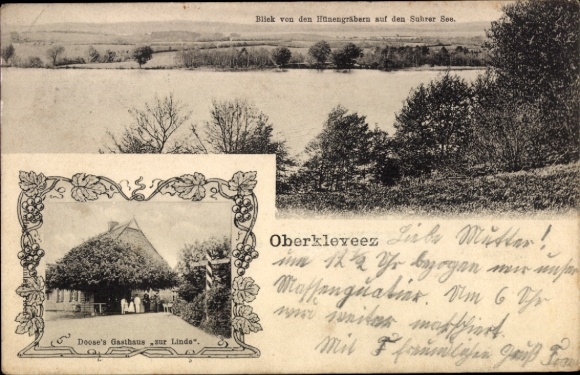 Blick von den Hünengräbern auf den Suhrer See.
Oberkleveez
Liebe Mutter!
um 12½ Uhr bezogen wir unser
Massenquatier. Um 6 Uhr
wird weiter marschiert.
Mit freundlichem Gruß
Doose's Gasthaus „zur Linde".